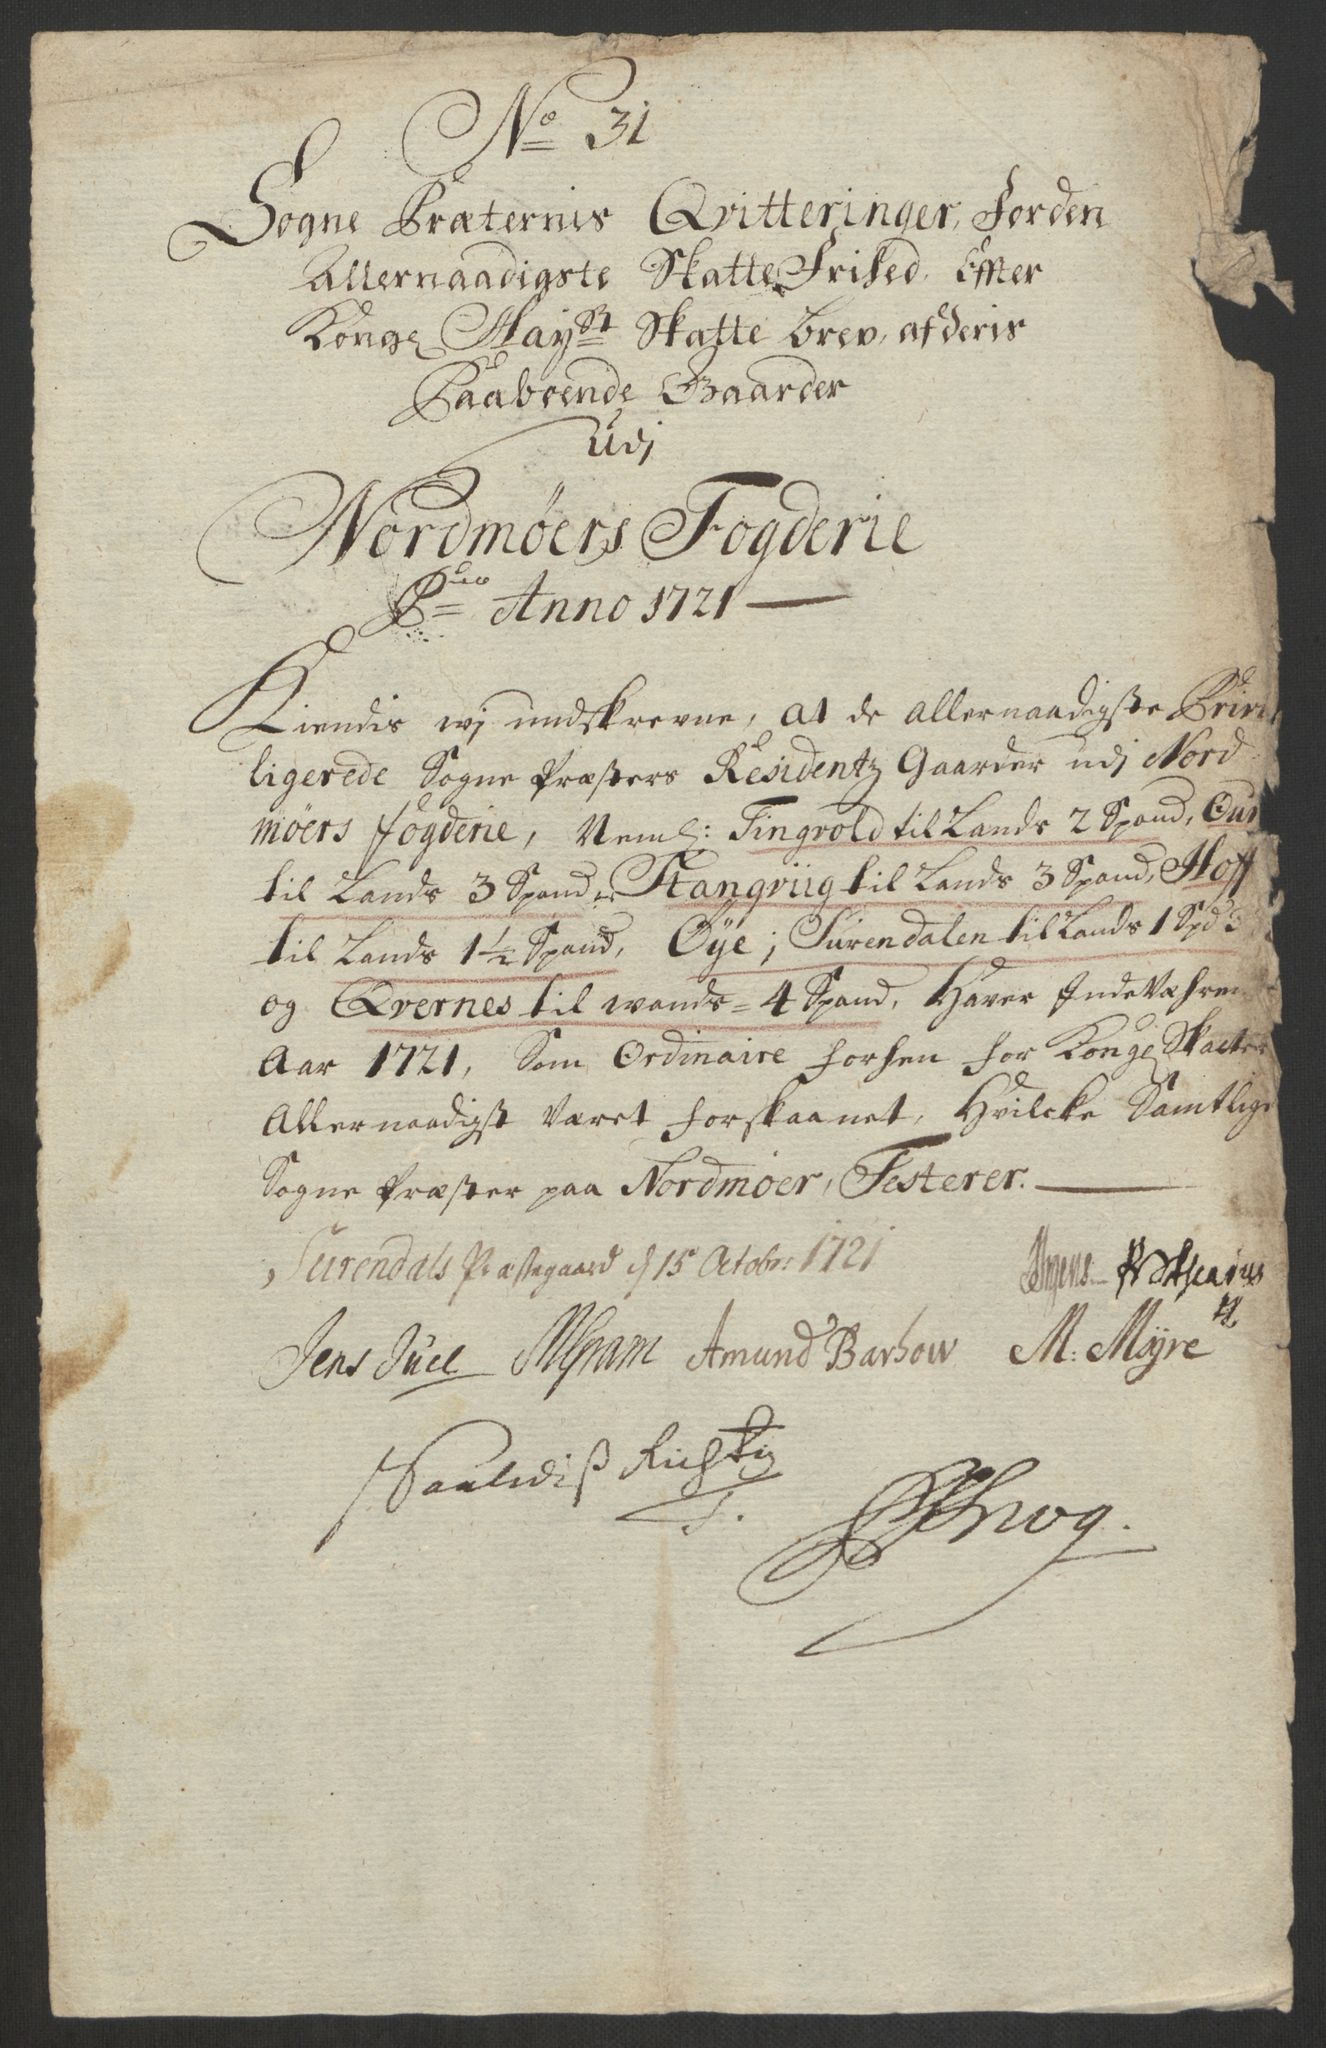 No 31
Sogne Præternis Qvitteringer, Forden
Allernaadigste Skatte Frihed, Effter
Kong: Mayst Skatte brev, af deris
Paaboende Gaarder
Udj
Nordmøers Fogderie
Pro Anno 1721
Kiendis wj undskrevne, at de allernaadigste Privi
ligerede Sogne Præsters Residentz Gaarder udj Nord
møers fogderie, Neml: Tingvold til Lands 2 Spand, Øur
til Lands 3 Spand, Stangviig til Lands 3 Spand, Hoff
til Lands 1½ Spand, Øye, j Surendalen til Lands 1 Spd 3
og Qvernes til wands = 4 Spand, Haver Indeværen
Aar 1721, Som Ordinaire forhen for Kong: Skatter
Allernaadigst Været forskaanet, Hvilcke Samtlige
Sogne Præster paa Nordmøer, Testerer.
Surendals Præstegaard d 15 Octobr: 1721
Jens Juel Amund Barhow M: Myre
Saaledis Rigtig